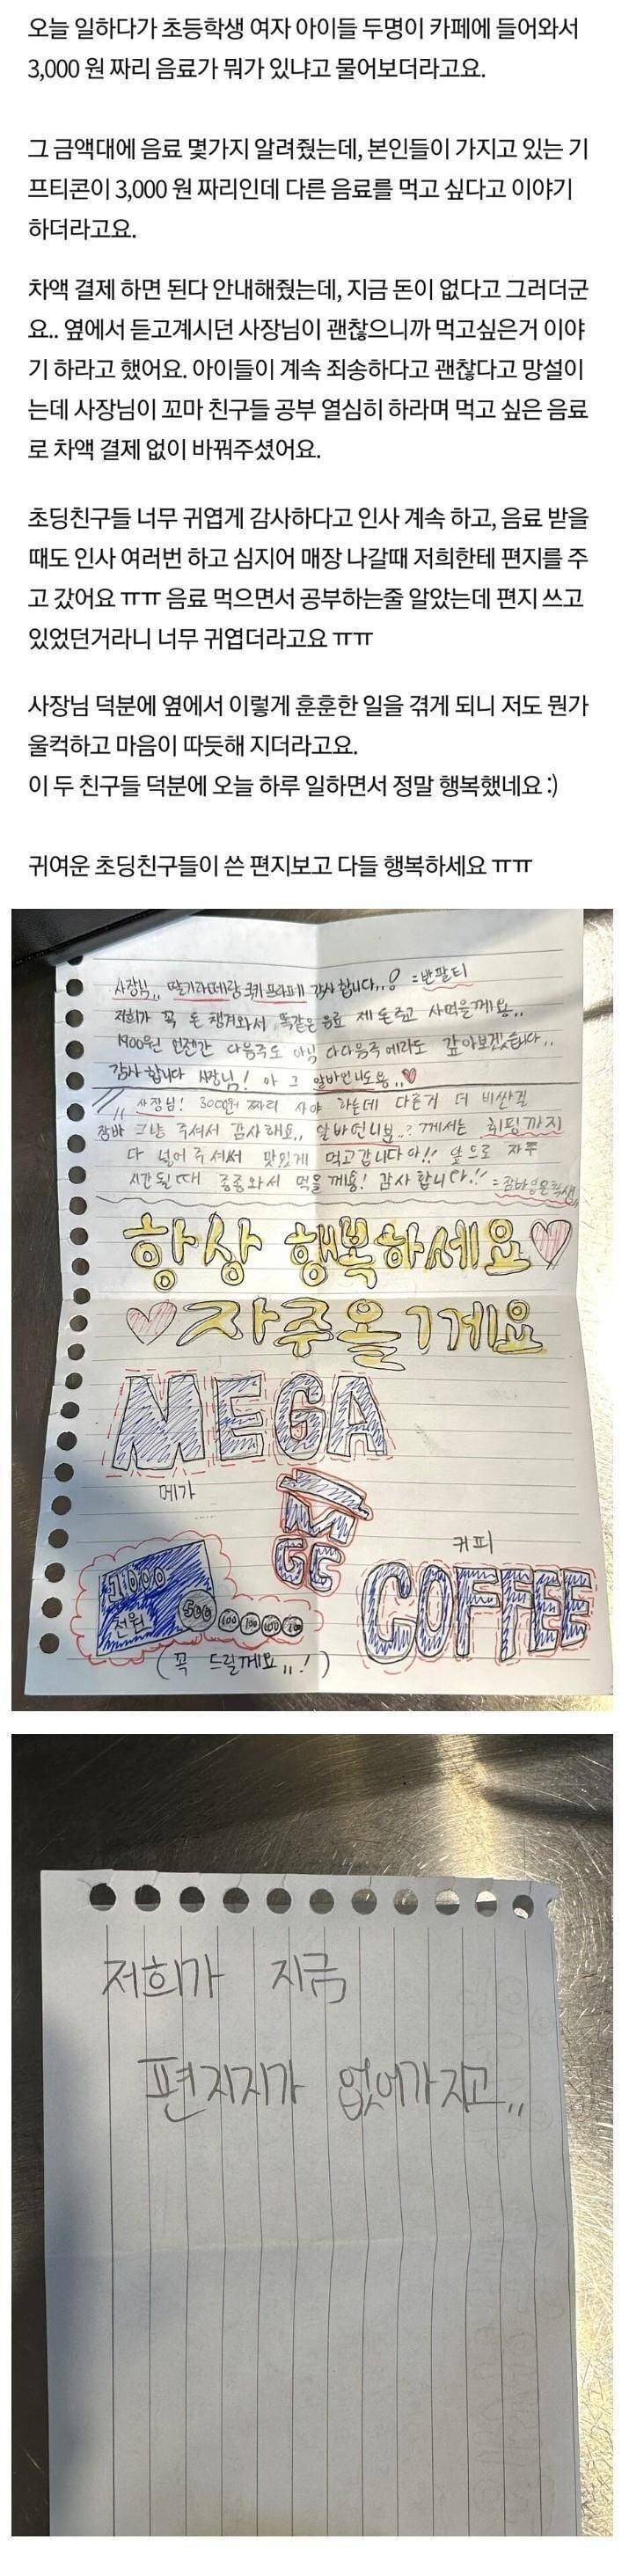 오늘 일하다가 초등학생 여자 아이들 두명이 카페에 들어와서
3,000 원 짜리 음료가 뭐가 있냐고 물어보더라고요.
그 금액대에 음료 몇가지 알려줬는데, 본인들이 가지고 있는 기
프티콘이 3,000 원 짜리인데 다른 음료를 먹고 싶다고 이야기
하더라고요.
차액 결제 하면 된다 안내해줬는데, 지금 돈이 없다고 그러더군
요.. 옆에서 듣고계시던 사장님이 괜찮으니까 먹고싶은거 이야
기 하라고 했어요. 아이들이 계속 죄송하다고 괜찮다고 망설이
는데 사장님이 꼬마 친구들 공부 열심히 하라며 먹고 싶은 음료
로 차액 결제 없이 바꿔주셨어요.
초딩친구들 너무 귀엽게 감사하다고 인사 계속 하고, 음료 받을
때도 인사 여러번 하고 심지어 매장 나갈때 저희한테 편지를 주
고 갔어요 ㅠㅠ 음료 먹으면서 공부하는줄 알았는데 편지 쓰고
있었던거라니 너무 귀엽더라고요 ㅠㅠ
사장님 덕분에 옆에서 이렇게 훈훈한 일을 겪게 되니 저도 뭔가
울컥하고 마음이 따듯해 지더라고요.
이 두 친구들 덕분에 오늘 하루 일하면서 정말 행복했네요 :)
귀여운 초딩친구들이 쓴 편지보고 다들 행복하세요 ㅠㅠ
사장님,, 딸기라떼랑 쿠키프라페 감사합니다,,! =반팔티
저희가 꼭 돈 챙겨와서 똑같은 음료 제 돈 주고 사먹을께용..
1900원 언젠간 다음주도 아님 다다음주에라도 갚아보겠습니다..
감사합니다 사장님! 아 그 알바언니도용..♥
사장님! 3000원 짜리 사야 하는데 다른거 더 비싼걸
잠바 그냥 주셔서 감사해요,, 알바언니분..? 께서는 휘핑까지
다 넣어주셔서 맛있게 먹고갑니다아!! 앞으로 자주
시간될때 종종와서 먹을께용! 감사합니다!! =잠바입은학생,,
항상 행복하세요♡
♡자주올게요
MEGA
메가
M
GC
커피
COFFEE
1000
천원
500 100 100 100 100
(꼭 드릴께요,,!)
저희가 지금
편지지가 없어가지고,,